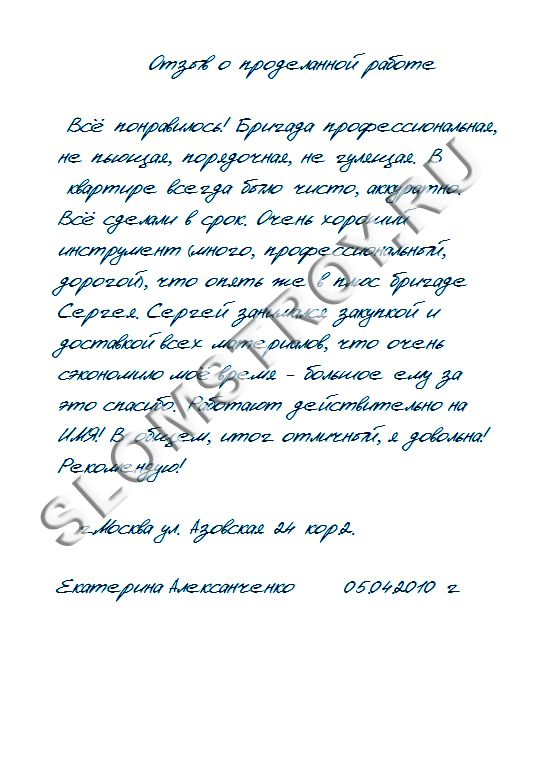 Отзыв о проделанной работе
Всё понравилось! Бригада профессиональная,
не пьющая, порядочная, не гулящая. В
квартире всегда было чисто, аккуратно.
Всё сделали в срок. Очень хороший
инструмент (много, профессиональный,
дорогой), что опять же в плюс бригаде
Сергея. Сергей занимался закупкой и
доставкой всех материалов, что очень
сэкономило моё время - большое ему за
это спасибо. Работают действительно на
ИМЯ! В общем, итог отличный, я довольна!
Рекомендую!
г.Москва ул. Азовская 24 кор2.
Екатерина Алексанченко 05.04.2010 г
SLOMSTROY.RU